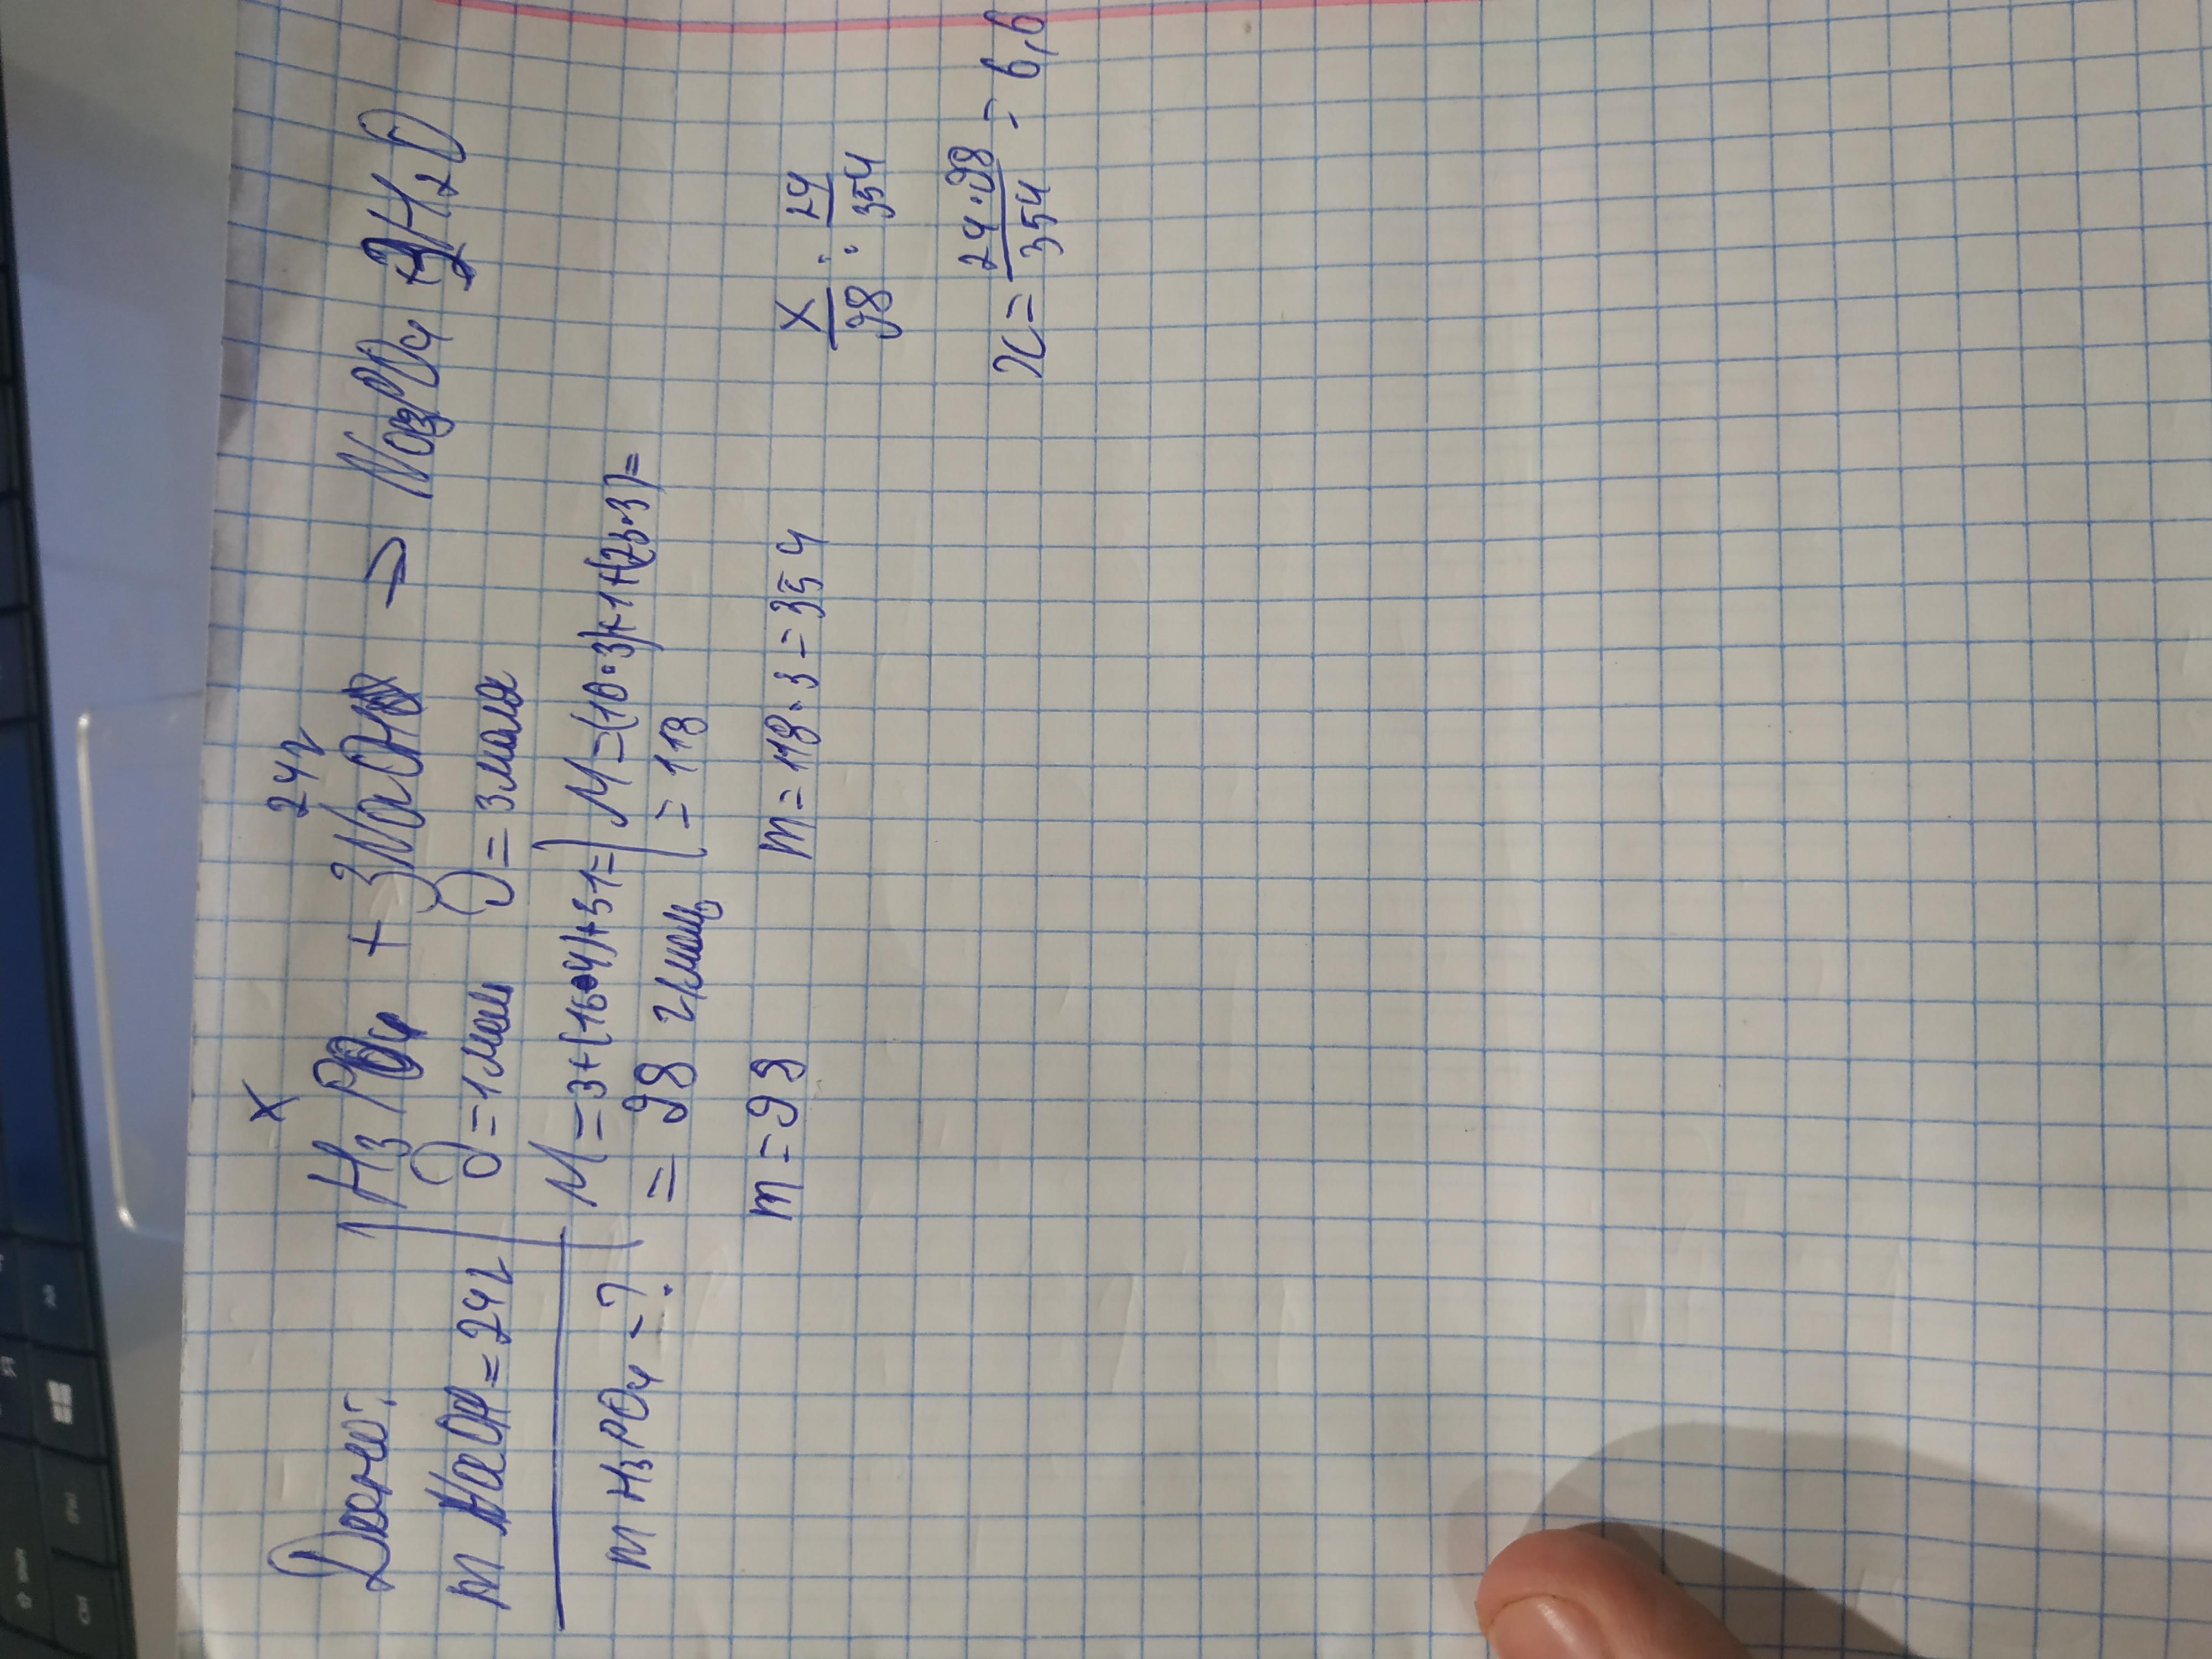 Дано:
m NaOH = 24г
m H₃PO₄ - ?
x 24г
H₃PO₄ + 3NaOH → Na₃PO₄ + 3H₂O
ν = 1 моль ν = 3 моля
M = 3+(16·4)+31= M = (16·3)+1+(23·3)=
= 98 г/моль = 118
m = 98 m = 118·3 = 354
x/98 : 24/354
x = 24·98/354 = 6,6